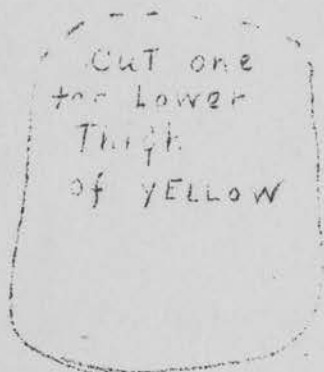 CUT one
for Lower
Thigh
of YELLOW